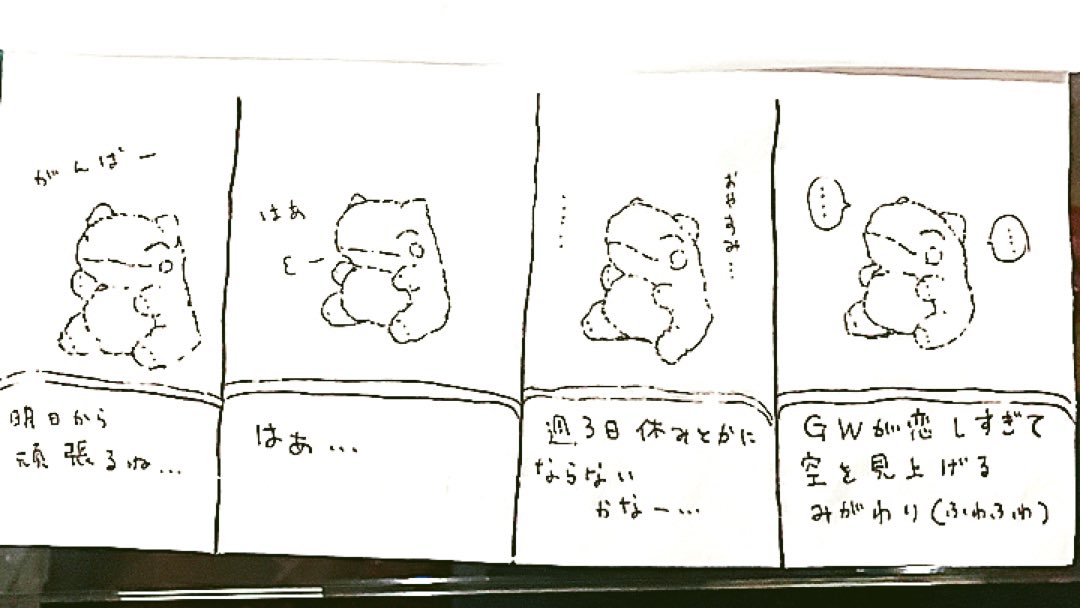 がんばー
明日から
頑張るね…
はあ
はあ…
おやすみ…
……
週3日休みとかに
ならない
かなー…
……
…
GWが恋しすぎて
空を見上げる
みがわり(ふわふわ)